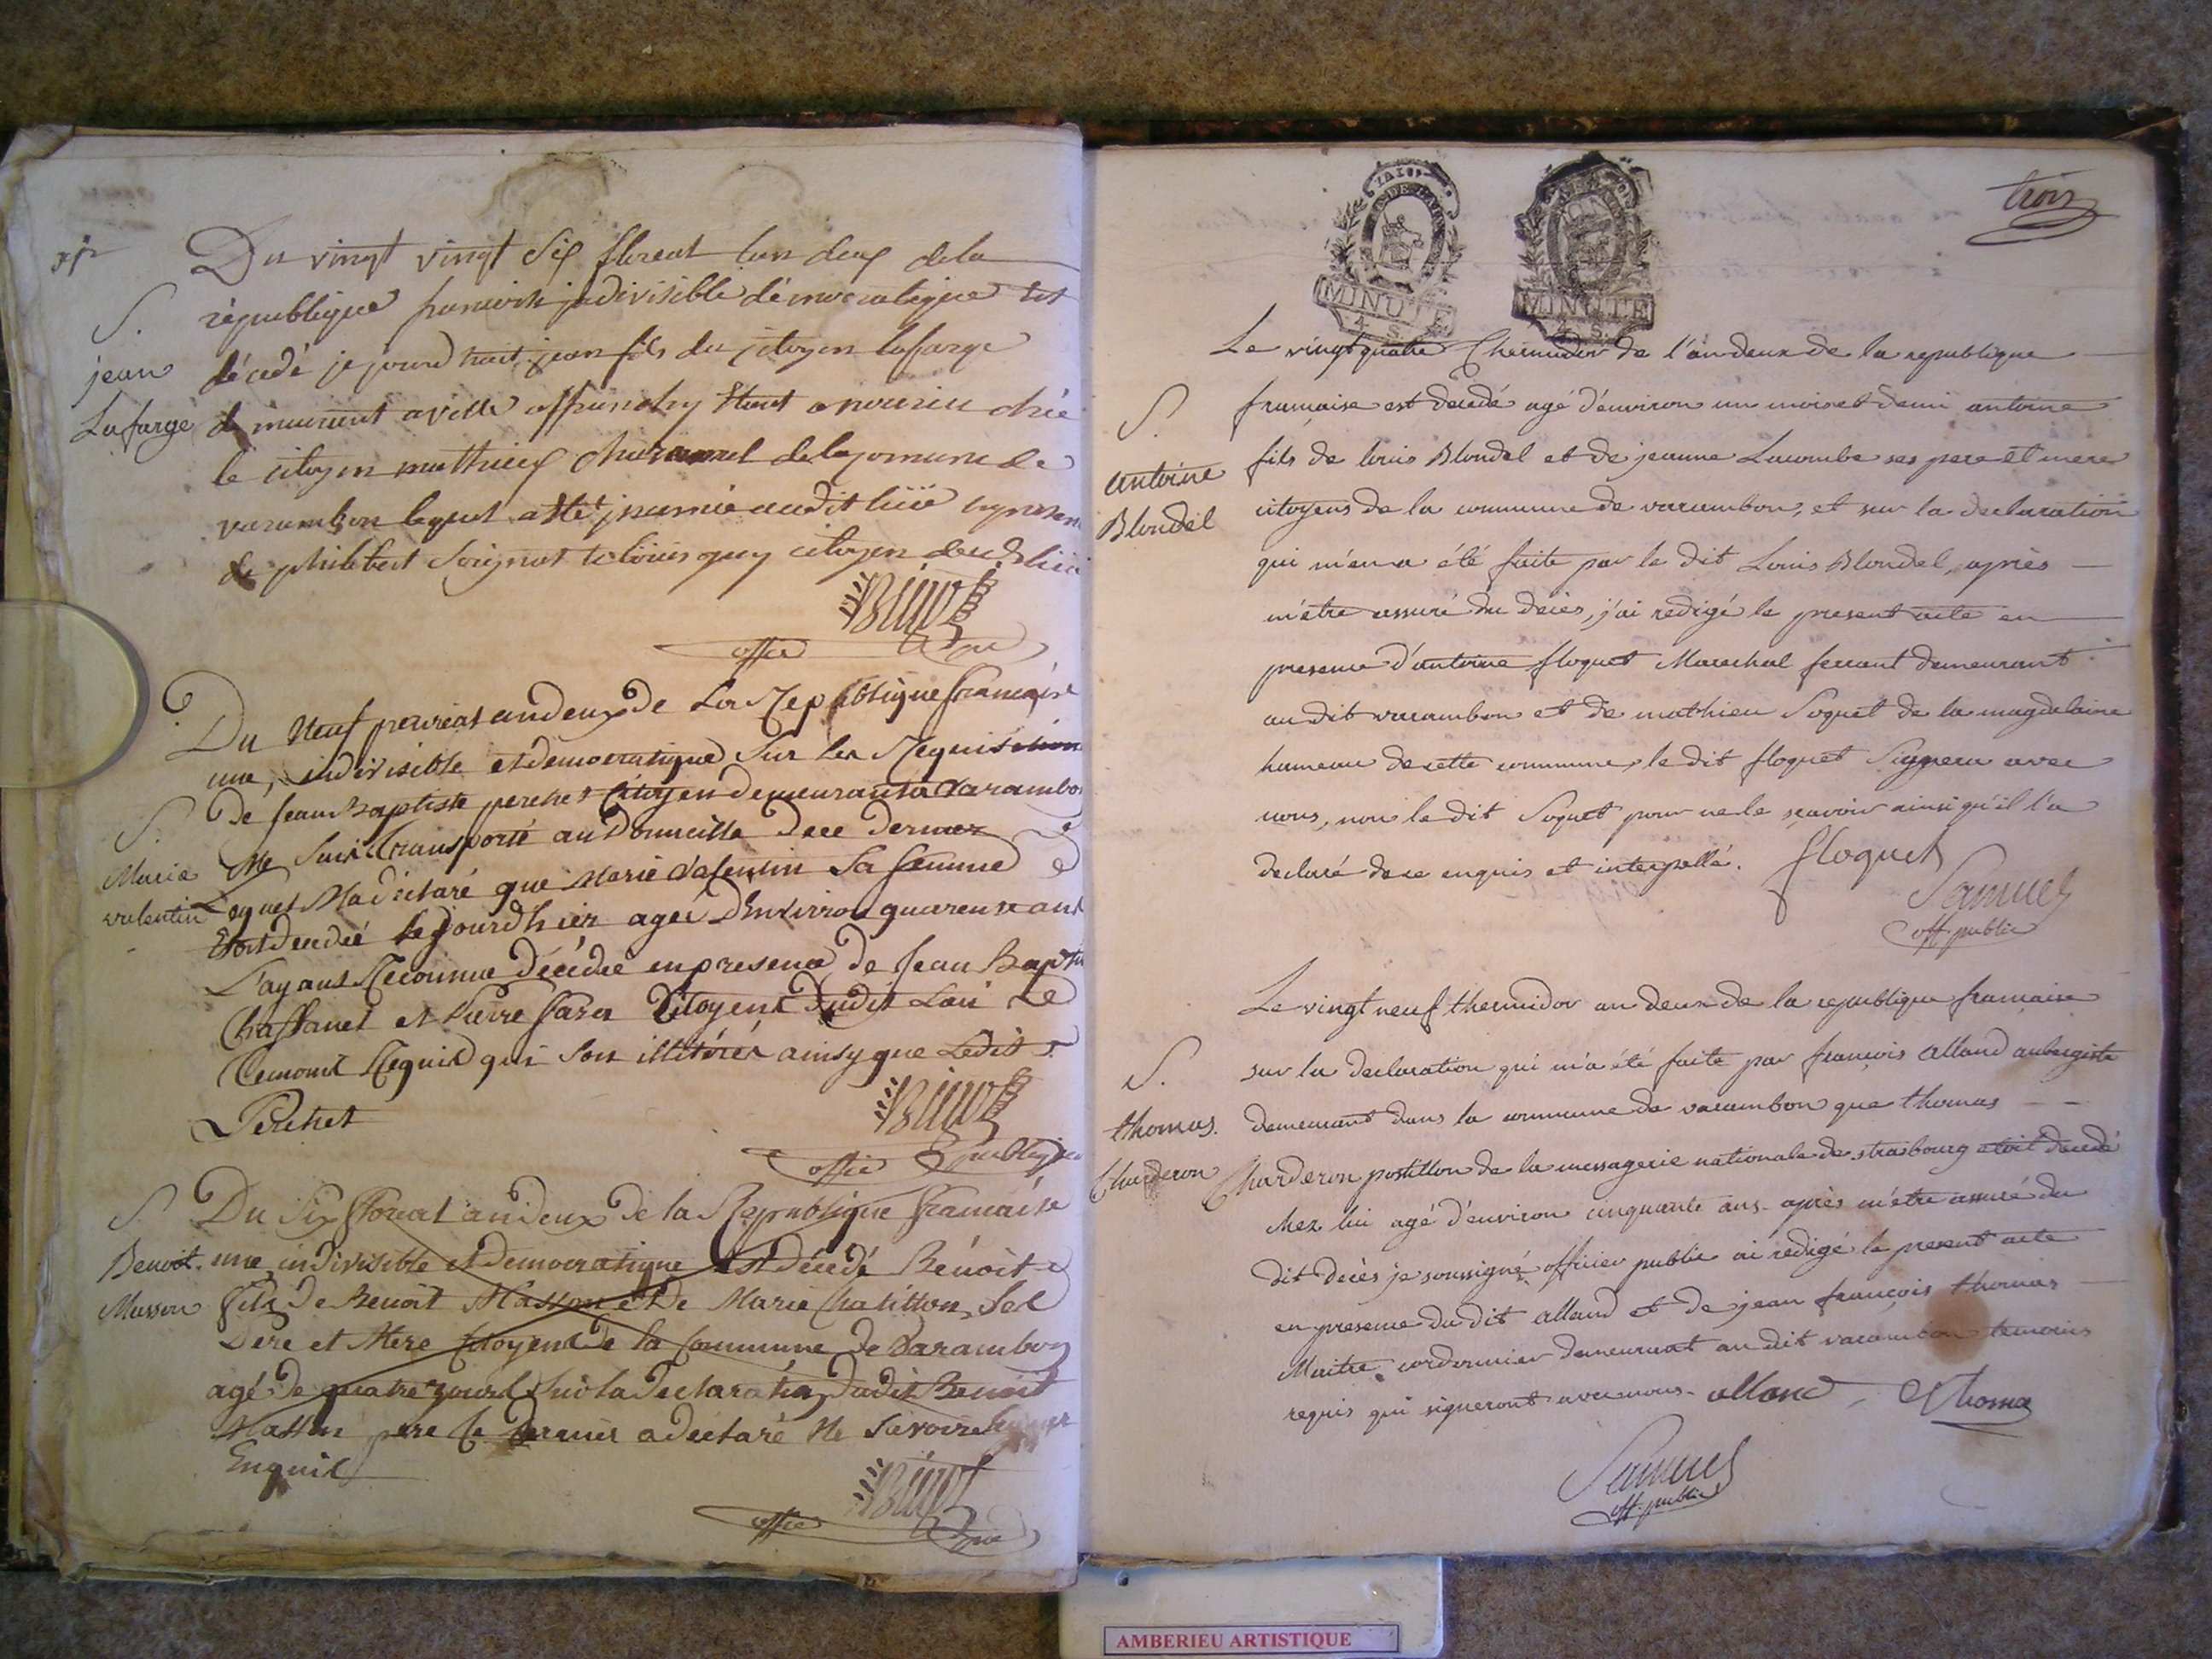 Du vingt vingt Six floreal lan deux de la
république francoise indivisible démocratique est
S.
jean
Lafarge
décedé je jourdhuit jean fils du sitoyen lafarge
demeurent a ville affranchy etent a nourice chée
le sitoyen mathieux de la comune de
varambon lequel a été inumé audit lieu
de philibert Soignot te louis guy citoyen dud lieu
Biliot
offie
Du Neuf preireal an deux de La Republique francaise
une, indivisible et democratique Sur les Requisition
S.
Marie
valentin
De Jean Baptiste perchet Citoyen demeurant a Varambon
Me Suis transporté au Domicille de ce dernier
Lequel Ma déclaré que Marie Valentin Sa femme
Etoit decedée le jourdhier agée D'environ quarente ans
L'ayant Reconnue décédée en presence de Jean Baptiste
Chaffanel et Pierre Citoyens dudit Lieu Le
temoins Requis qui Son illitérés ainsy que Ledit
Perchet
Biliot
offie publique
S.
Benoit
Masson
Du Six floreal an deux de la Republique francaise
une indivisible et democratique est décédé Benoit
fils de Benoit Masson et de Marie Chatillon, Ses
Pere et Mere Citoyens de la Commune de Varambon
agé de quatre jours Sur la declaration dudit Benoit
Masson pere Ce dernier a déclaré Ne Savoire Signer
Enquis
Biliot
offie
trois
MINUTE
4. S.
MINUTE
4. S.
Le vingt quatre Thermidor de l'an deux de la republique
S.
antoine
Blondel
francaise est décedé agé d'environ un mois et demi antoine
fils de louis Blondel et de jeanne Lacombe ses pere et mere
citoyens de la commune de varambon, et sur la declaration
qui m'en a été faite par le dit Louis Blondel, après
m'etre assuré du décès, j'ai redigé le present acte en
presence d'antoine floquet Marechal ferrant demeurant
au dit varambon et de mathieu Soquet de la magdelaine
hameau de cette commune, le dit floquet Signera avec
nous, non le dit Soquet pour ne le sçavoir ainsi qu'il l'a
declaré de ce enquis et interpellé. floquet
Samuel
off public
Le vingt neuf thermidor an deux de la republique francaise
S.
thomas.
Charderon
sur la declaration qui m'a été faite par françois alland aubergiste
demeurant dans la commune de varambon que thomas
Charderon postillon de la messagerie nationale de strasbourg etoit decedé
chez lui agé d'environ cinquante ans. après m'etre assuré du
dit décès je soussigné officier public ai redigé le present acte
en presence du dit alland et de jean françois thomas
Maitre cordonnier demeurant au dit varambon temoins
requis qui signeront avec nous. alland, Thomas
Samuel
off. public
AMBERIEU ARTISTIQUE